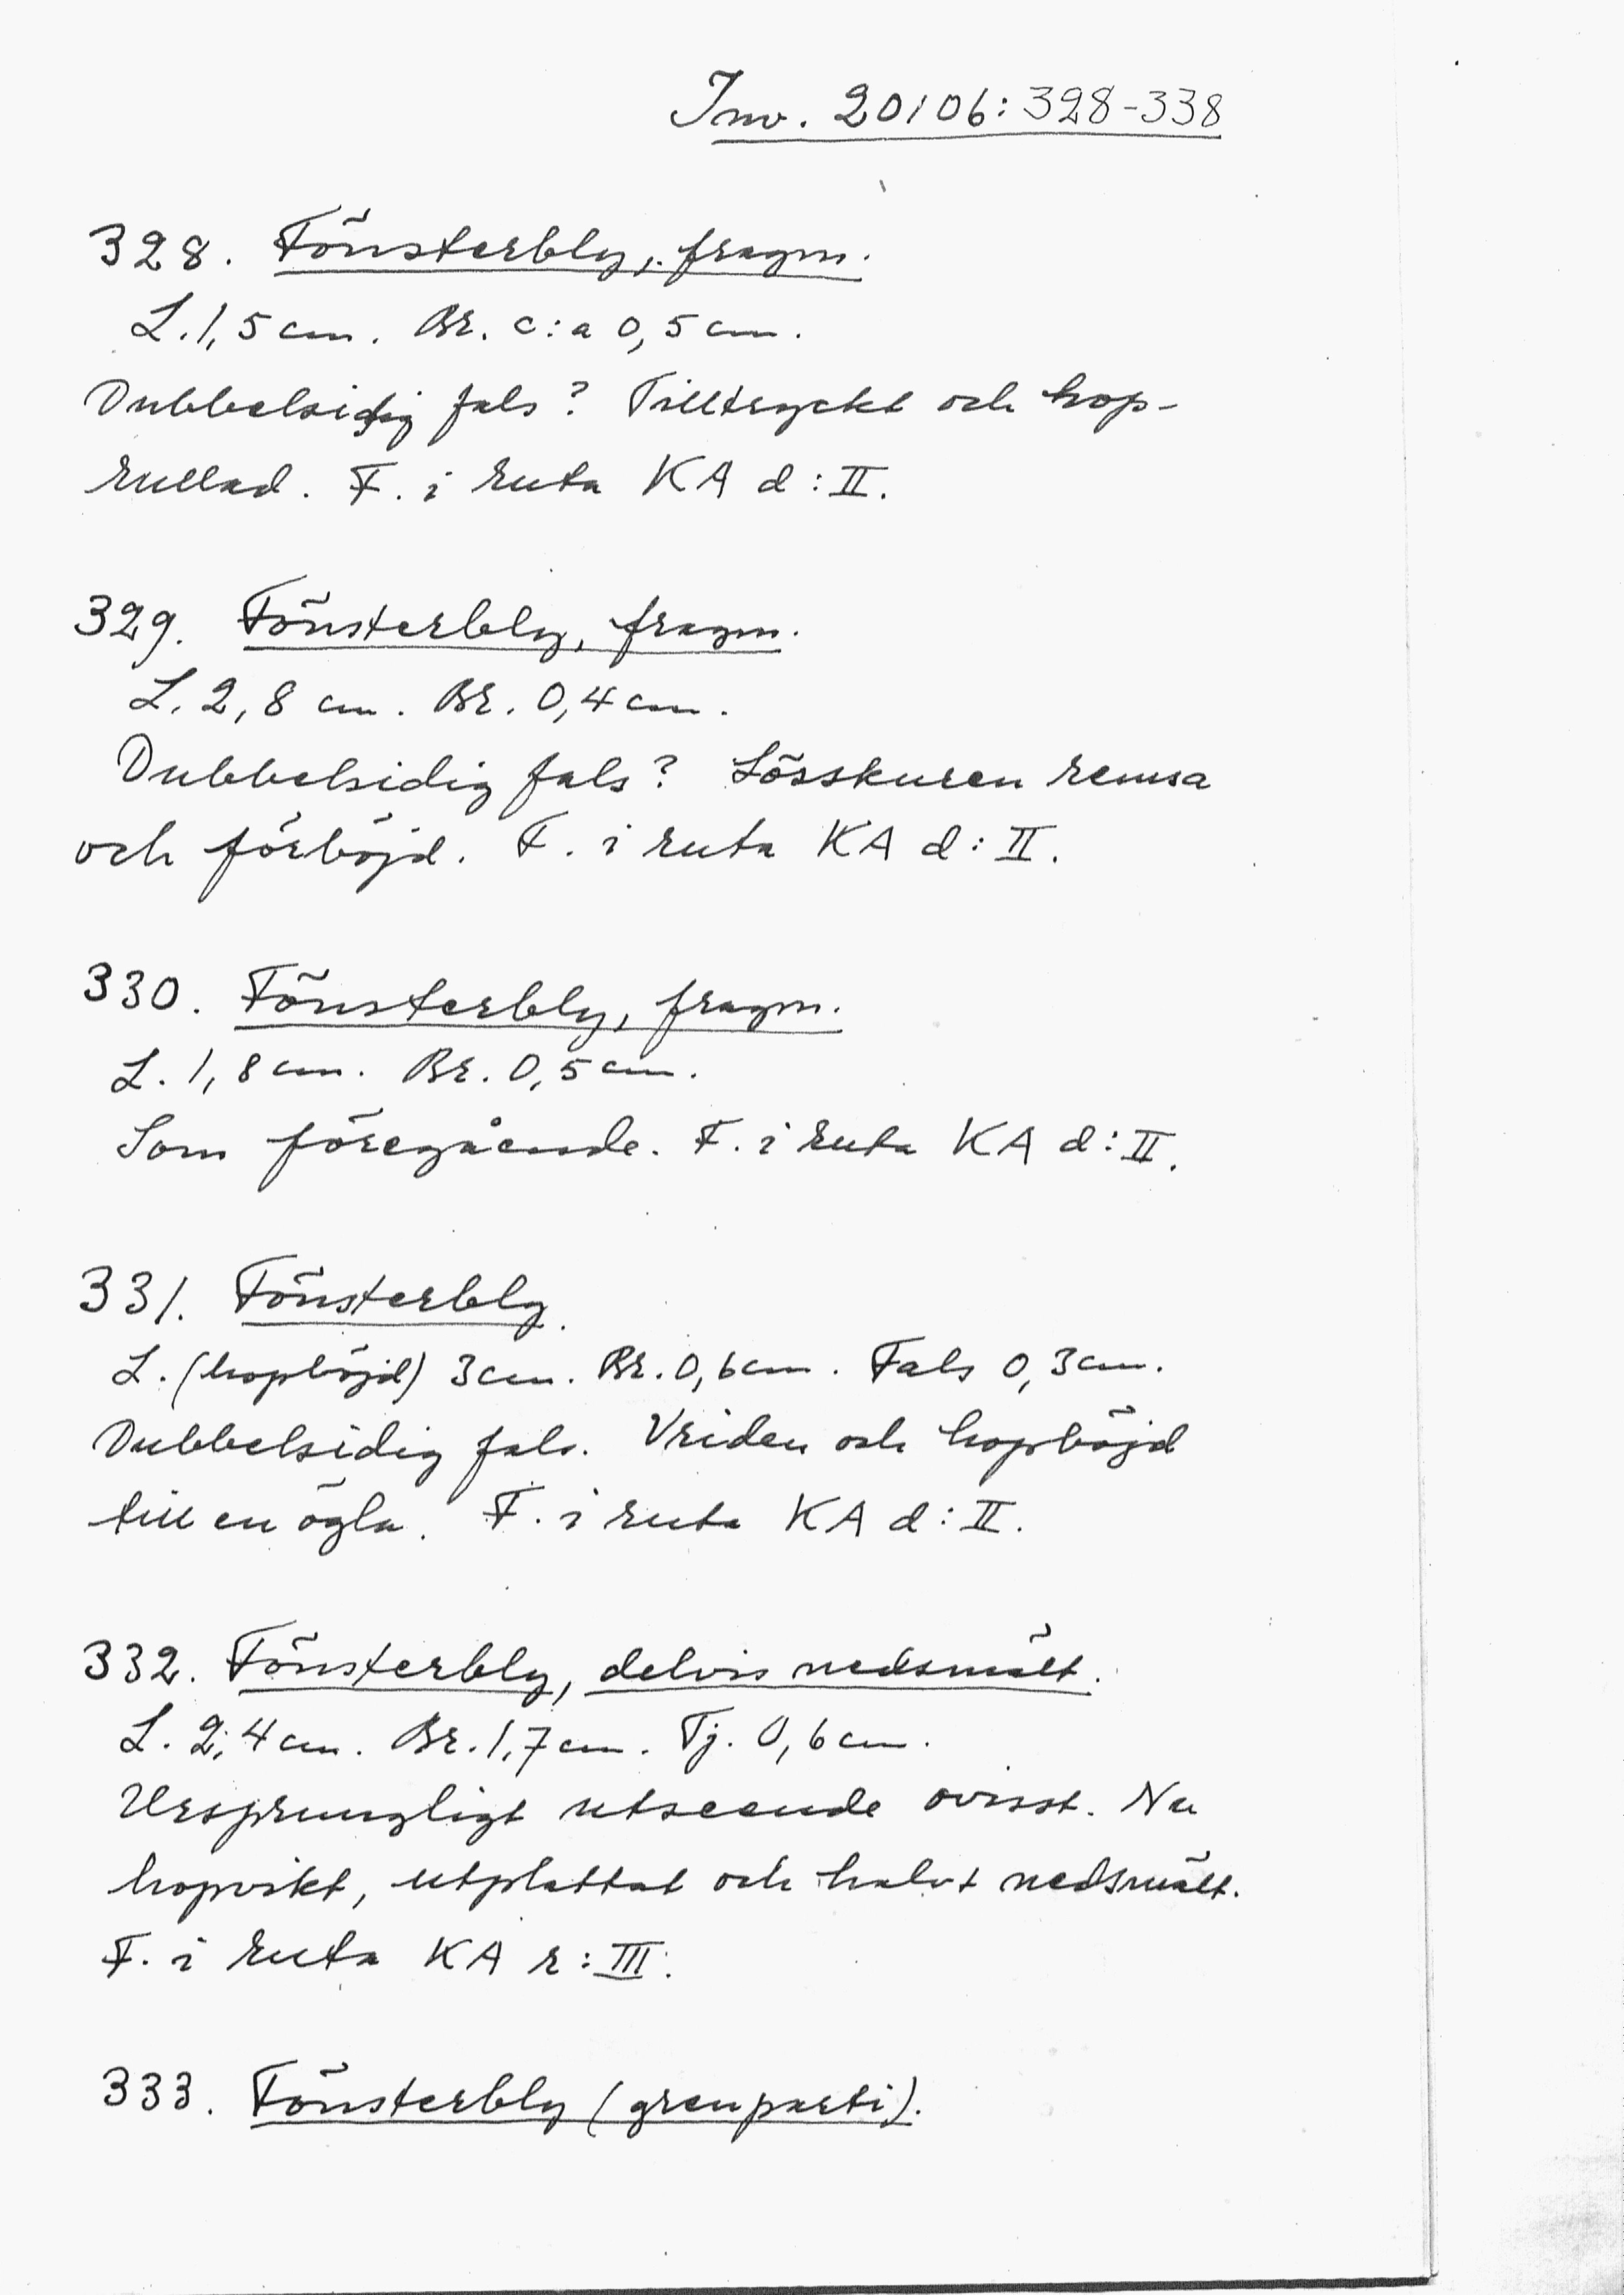 Inv. 20106:328-338
328. Fönsterbly, fragm.
L. 1,5 cm. Br. c:a 0,5 cm.
Dubbelsidig fals? Tilltryckt och hop-
rullad. F. i ruta KA d:II.
329. Fönsterbly, fragm.
L. 2,8 cm. Br. 0,4 cm.
Dubbelsidig fals? Lösskuren remsa
och förböjd. F. i ruta KA d:II.
330. Fönsterbly, fragm.
L. 1,8 cm. Br. 0,5 cm.
Som föregående. F. i ruta KA d:II.
331. Fönsterbly.
L. (hopböjd) 3 cm. Br. 0,6 cm. Fals 0,3 cm.
Dubbelsidig fals. Vriden och hopböjd
till en ögla. F. i ruta KA d:II.
332. Fönsterbly, delvis nedsmält.
L. 2,4 cm. Br. 1,7 cm. Tj. 0,6 cm.
Ursprungligt utseende ovisst. Nu
hopvikt, utplattat och halvt nedsmält.
F. i ruta KA r:III.
333. Fönsterbly (grenparti).